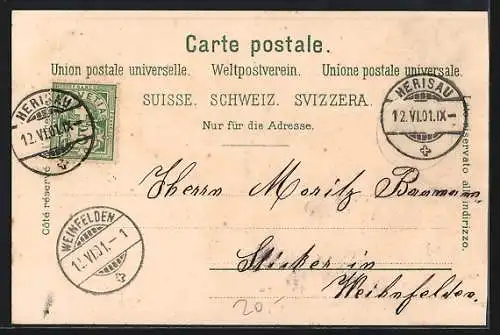 Carte postale.
Union postale universelle. Weltpostverein. Unione postale universale.
SUISSE. SCHWEIZ. SVIZZERA.
Nur für die Adresse.
Côté réservé
riservato all'indirizzo.
HERISAU
12.VI.01.IX-
HERISAU
12.VI.01.IX-
WEINFELDEN
12.VI.01.-1
Herrn Moritz Baumann
Sticker in
Weinfelden
20.-